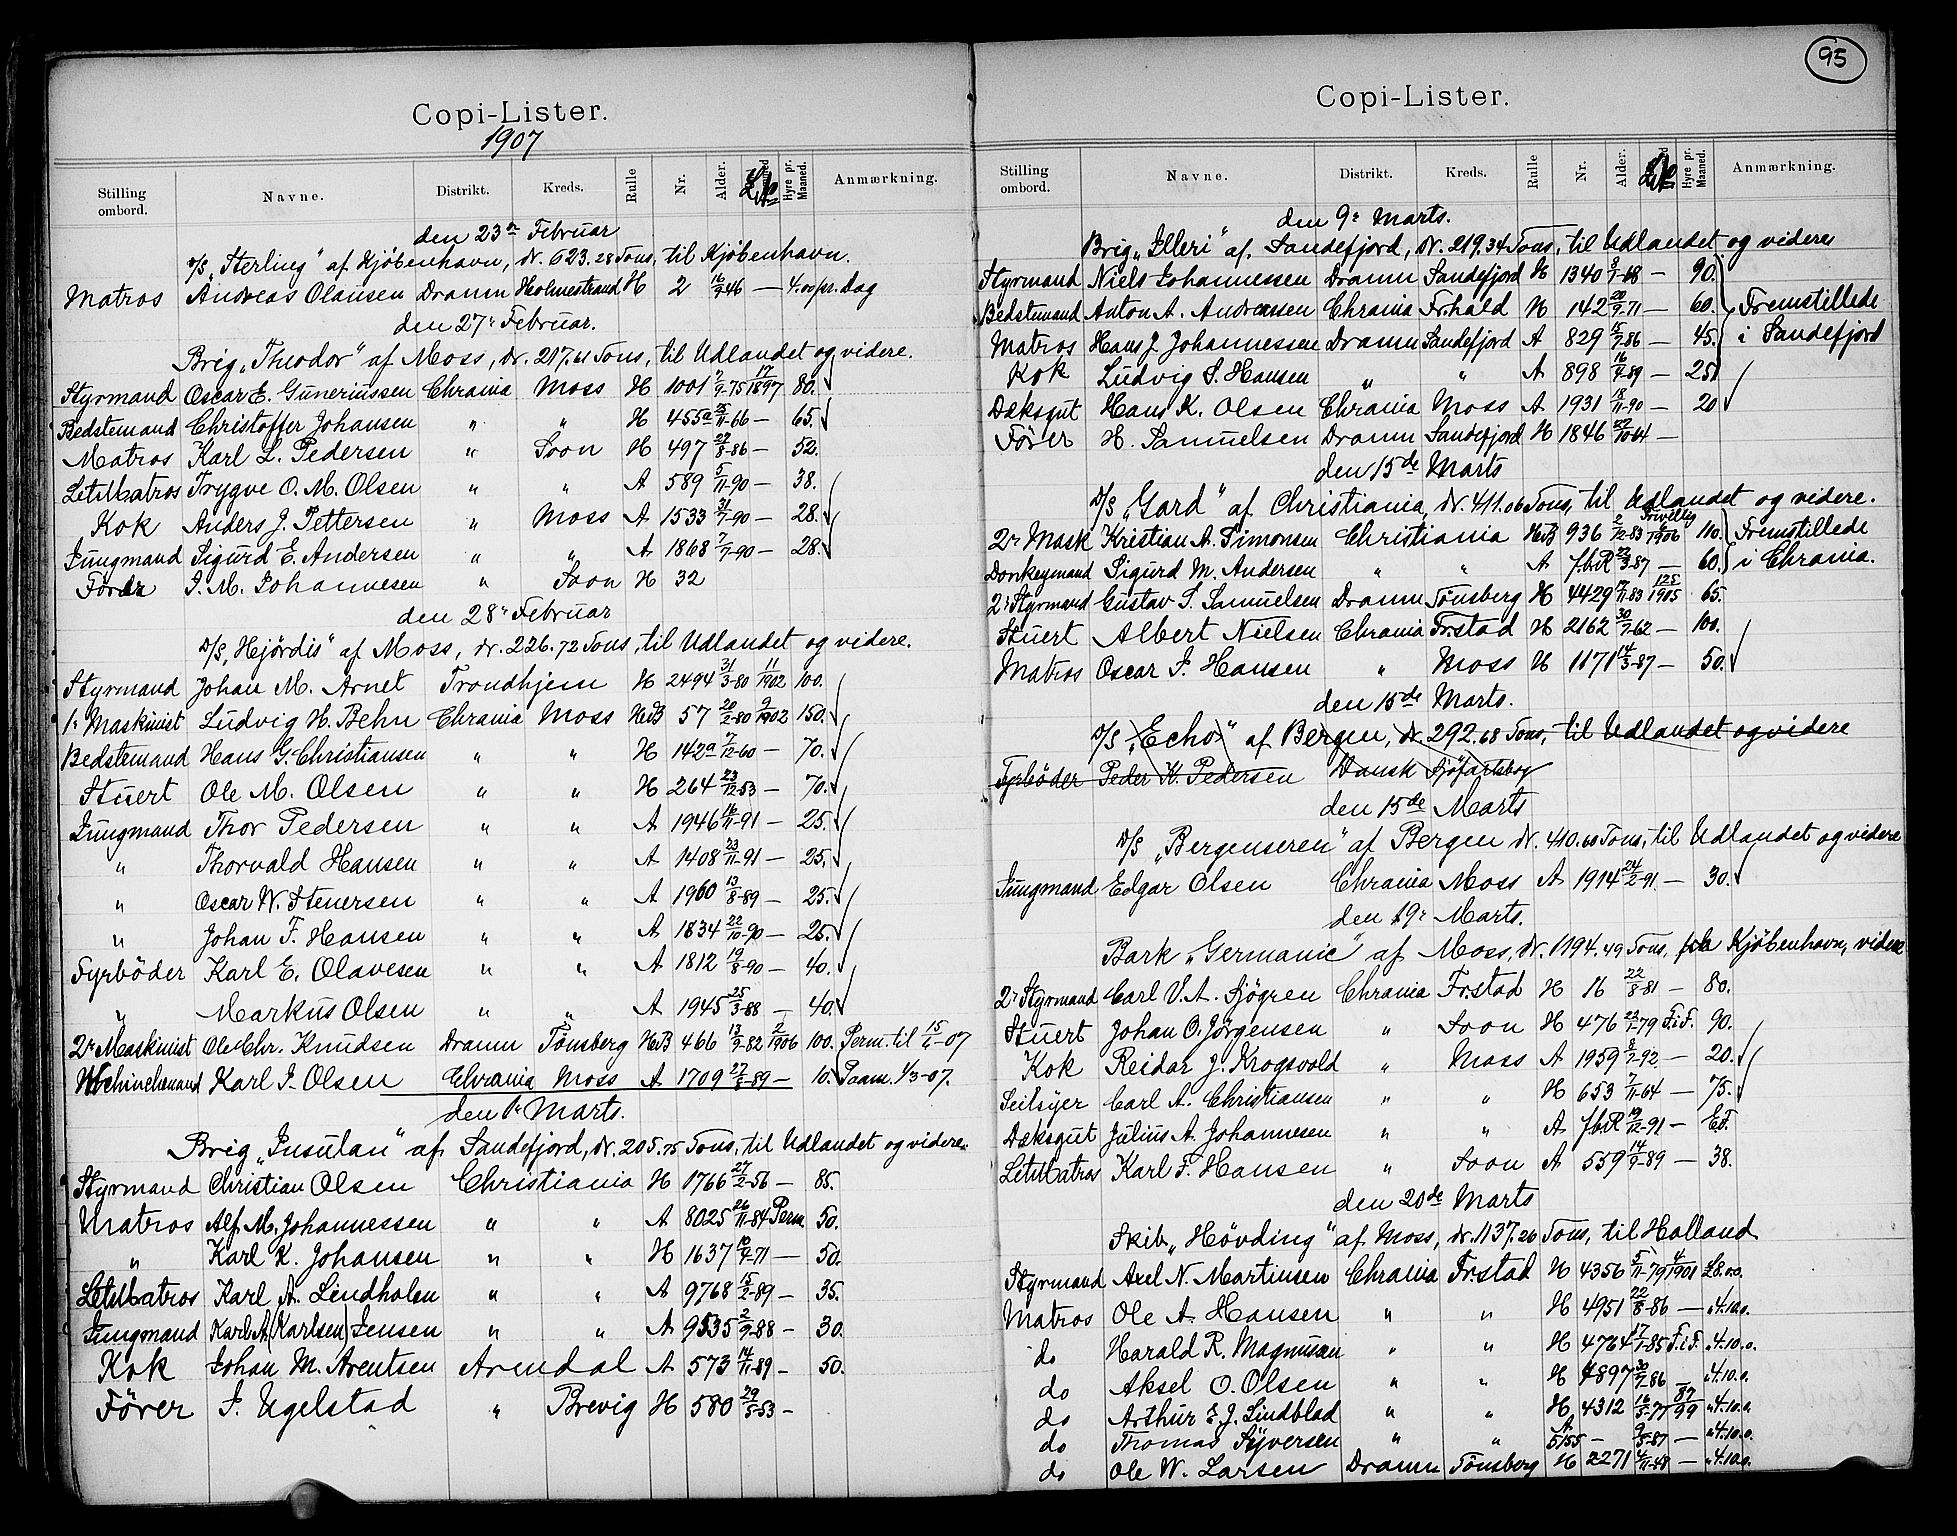 Copi-Lister.
1907
Stilling ombord. Navne. Distrikt. Kreds. Rulle Nr. Alder. Hyre pr. Maaned. Anmærkning.
den 23de Februar
D/S „Sterling" af Kjöbenhavn, dr. 623.28 Tons, til Kjöbenhavn.
Matros Andreas Olausen Dramn Holmestrand H 2 16/9-46 — 4.00 pr. Dag
den 27r Februar.
Brig „Theodor" af Moss, dr. 217.61 Tons, til Udlandet og videre.
Styrmand Oscar E. Guneriussen Chrania Moss H 1001 7/9-75 17/1897 80.
Bedstemand Christoffer Johansen „ „ H 455a 25/11-66 — 65.
Matros Karl L. Pedersen „ Soon H 497 27/8-86 — 52.
LetMatros Trygve O. M. Olsen „ „ A 589 5/11-90 — 38.
Kok Anders J. Pettersen „ Moss A 1533 31/7-90 — 28.
Jungmand Sigurd E. Andersen „ „ A 1868 7/7-90 — 28.
Förer J. M. Johannesen „ Soon H 32
den 28r Februar
D/S „Hjördis" af Moss, dr. 226.72 Tons, til Udlandet og videre.
Styrmand Johan M. Arnet Trondhjem H 2494 31/3-80 11/1902 100.
1r Maskinist Ludvig H. Behn Chrania Moss HdB 57 20/2-80 9/1902 150.
Bedstemand Hans G. Christiansen „ „ H 142a 7/12-60 — 70.
Stuert Ole M. Olsen „ „ H 264 23/12-53 — 70.
Jungmand Thor Pedersen „ „ A 1946 16/11-91 — 25.
„ Thorvald Hansen „ „ A 1408 23/11-91 — 25.
„ Oscar W. Stenersen „ „ A 1960 13/8-89 — 25.
„ Johan F. Hansen „ „ A 1834 22/10-90 — 25.
Fyrböder Karl E. Olavesen „ „ A 1812 19/8-90 — 40.
„ Markus Olsen „ „ A 1945 25/3-88 — 40.
2r Maskinist Ole Chr. Knudsen Dramn Tönsberg HdB 466 13/9-82 2/1906 100. Perm. til 15/4-07
Karl J. Olsen Chrania Moss A 1709 27/8-89 — 10. Paam. 1/3-07.
den 1r Marts.
Brig „Insulan" af Sandefjord, dr. 205.75 Tons, til Udlandet og videre.
Styrmand Christian Olsen Christiania H 1766 27/2-56 — 85.
Matros Alf M. Johannessen „ „ A 8025 26/11-84 Perm. 50.
„ Karl K. Johansen „ „ H 1637 10/4-71 — 50.
LetMatros Karl A. Lindholm „ „ A 9768 15/2-89 — 35.
Jungmand Karl A. (Karlsen) Jensen „ „ A 9535 2/9-88 — 30.
Kok Johan M. Arentsen Arendal A 573 14/11-89 — 50.
Förer J. Ugelstad „ Brevig H 580 29/5-53 —
95
Copi-Lister.
Stilling ombord. Navne. Distrikt. Kreds. Rulle Nr. Alder. Hyre pr. Maaned. Anmærkning.
den 9r Marts.
Brig „Illeri" af Sandefjord, dr. 219.34 Tons, til Udlandet og videre
Styrmand Niels Johannessen Dramn Sandefjord H 1340 8/1-68 — 90.
Bedstemand Anton A. Andreassen Chrania Fr.hald H 142 20/9-71 — 60. Fremstillede
Matros Hans J. Johannessen Dramn Sandefjord A 829 15/7-86 — 45. i Sandefjord
Kok Ludvig S. Hansen „ „ A 898 16/9-89 — 25.
Dæksgut Hans K. Olsen Chrania Moss A 1931 18/11-90 — 20
Förer H. Samuelsen Dramn Sandefjord H 1846 22/10-64 —
den 15de Marts
D/S „Gard" af Christiania, dr. 411.06 Tons, til Udlandet og videre.
2r Mask Kristian A. Simonsen Christiania HdB 936 2/12-83 Frivillig 4/1906 110. Fremstillede
Donkeymand Sigurd M. Andersen „ „ A f.b.R 22/3-87 — 60. i Chrania.
2r Styrmand Gustav S. Samuelsen Dramn Tönsberg H 4429 17/11-83 125/1905 65.
Stuert Albert Nielsen Chrania Fr.stad H 2162 30/7-62 — 100.
Matros Oscar J. Hansen „ Moss H 1171 14/3-87 — 50.
den 15de Marts.
D/S „Echo" af Bergen, dr. 292.68 Tons, til Udlandet og videre
Fyrböder Peder K. Pedersen Dansk Sjöfartsbog
den 15de Marts
D/S „Bergenseren" af Bergen dr. 410.60 Tons, til Udlandet og videre
Jungmand Edgar Olsen Chrania Moss A 1914 24/2-91 — 30.
den 19r Marts.
Bark „Germanic" af Moss, dr. 1194.49 Tons, Kjöbenhavn, videre
2r Styrmand Carl V. A. Sjögren Chrania Fr.stad H 16 22/8-81 — 80.
Stuert Johan O. Jörgensen „ Soon H 476 23/1-79 F.i.F. 90.
Kok Reidar J. Krogsvold „ Moss A 1959 8/7-92 — 20.
Seilsyer Carl A. Christiansen „ „ H 653 7/11-64 — 75.
Dæksgut Julius A. Johannesen „ „ A f.b.R 19/12-91 — E.F.
LetMatros Karl F. Hansen „ Soon A 559 14/9-89 — 38.
den 20de Marts
Skib „Hövding" af Moss, dr. 1137.26 Tons, til Holland
Styrmand Axel N. Martinsen Chrania Fr.stad H 4356 5/11-79 4/1901 £8.0.0.
Matros Ole A. Hansen „ „ H 4951 22/8-86 — „4.10.0.
do Harald R. Magnusen „ „ H 4764 17/1-85 F.i.F. „4.10.0.
do Aksel O. Olsen „ „ H 4897 30/7-86 — „4.10.0.
do Arthur E. J. Lindblad „ „ H 4312 16/5-77 87/99 „4.10.0.
do Thomas Syversen „ „ A 5155 — 9/5-87 — „4.10.0.
do Ole W. Larsen Dramn Tönsberg H 2271 4/11-48 — „4.10.0.